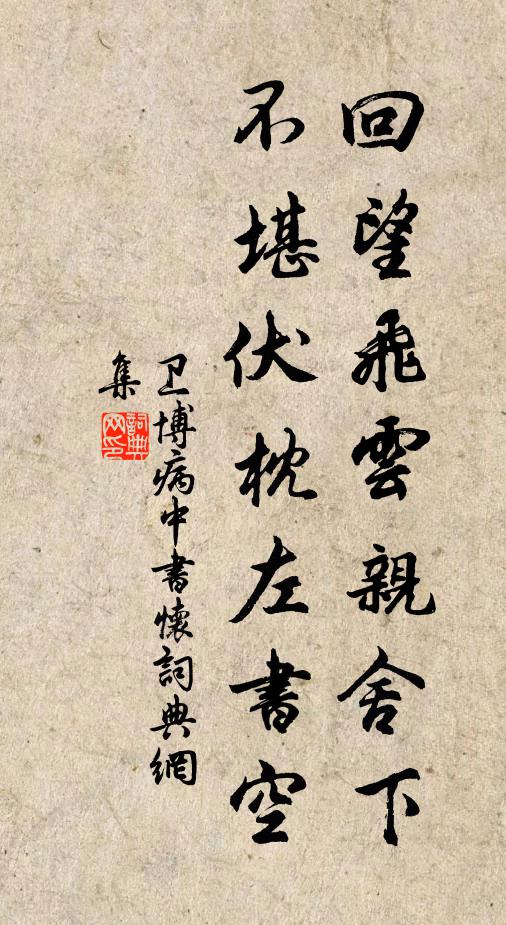 回望飛雲親舍下
不堪伏枕左書空
卫博病中書懷詞典網
集
詞典
网印